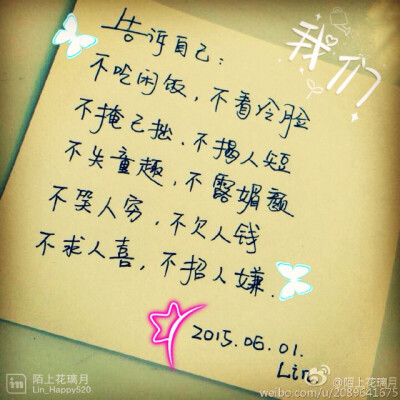 告诉自己：
我们
不吃闲饭，不看冷脸
不掩己拙、不揭人短
不失童趣，不露媚颜
不笑人穷，不欠人钱
不求人喜，不招人嫌.
2015.06.01.
Lin
in 陌上花璃月
Lin_Happy520
@陌上花璃月
weibo.com/u/2089641675